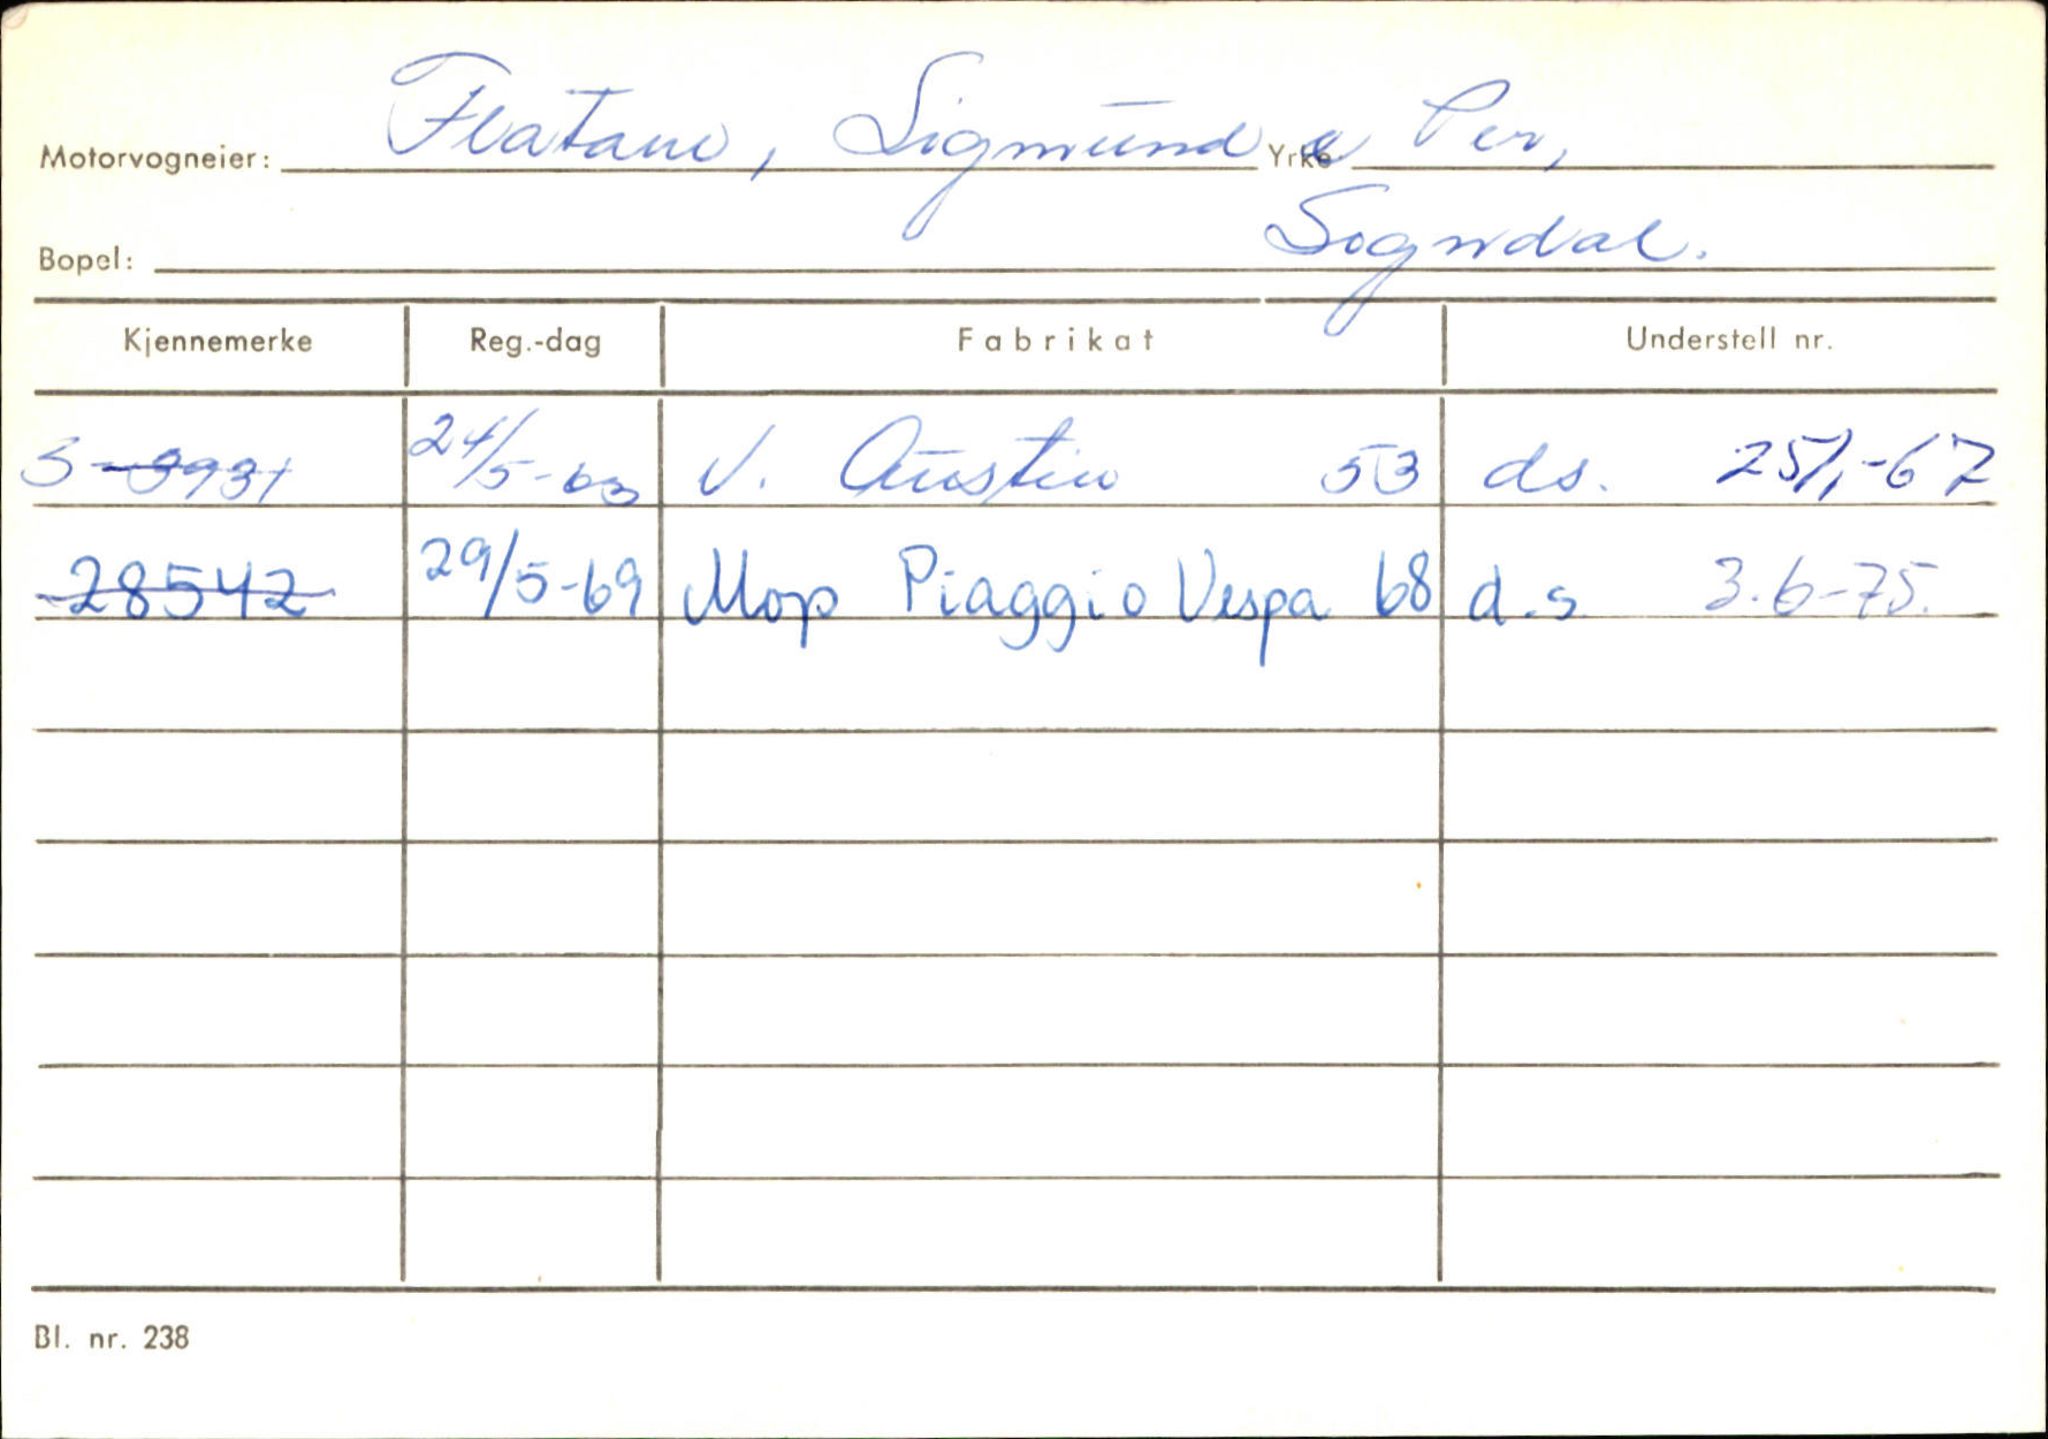 Motorvogneier: Flatane, Sigmund e Per, Yrke
Bopel: Sogndal.
Kjennemerke Reg.-dag Fabrikat Understell nr.
S-8931 24/5-63 V. Austin 53 ds. 25/1-67
28542 29/5-69 Mop Piaggio Vespa 68 d.s 3.6-75.
Bl. nr. 238